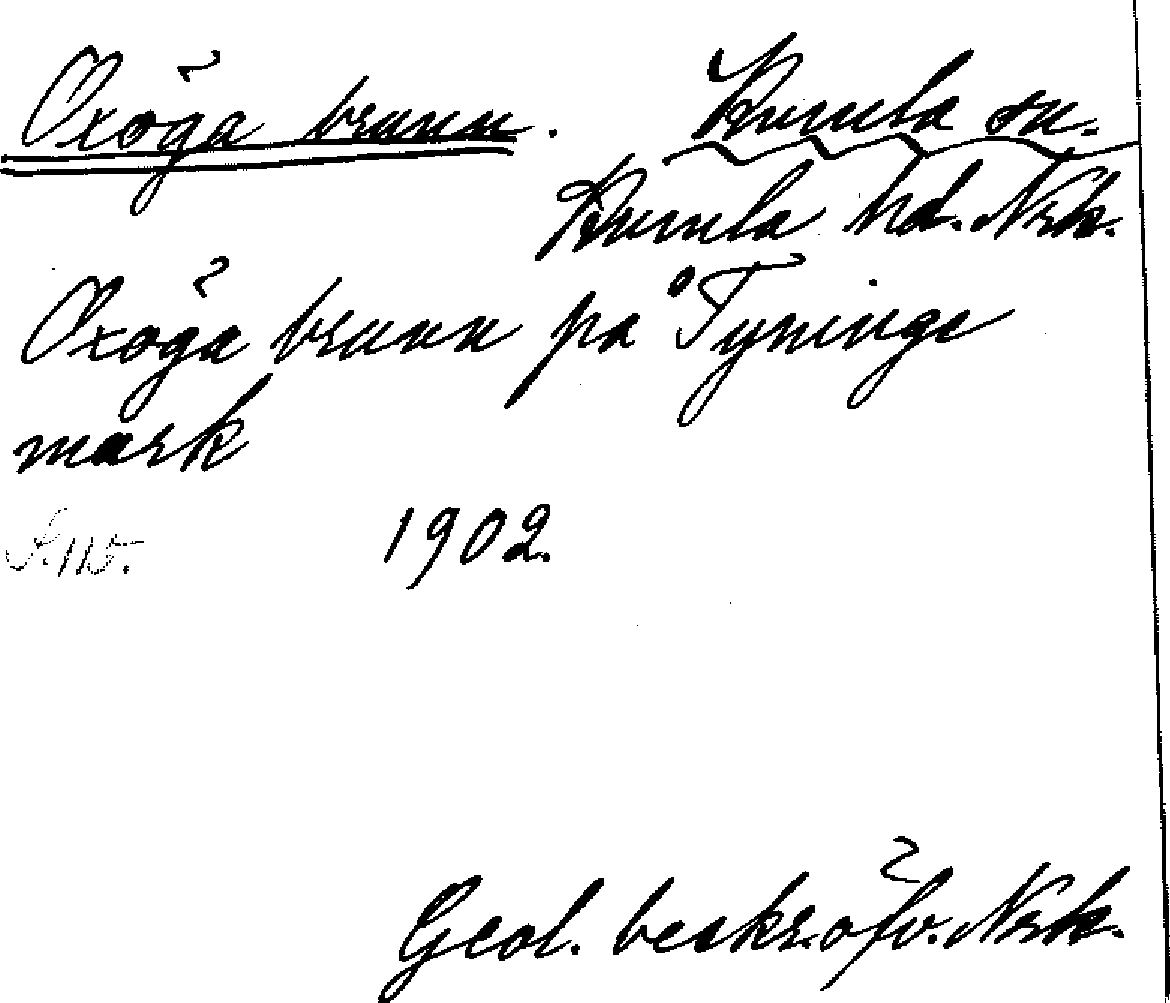 Oxöga brunn. Kumla sn.
Kumla hd. Nrk.
Oxöga brunn på Tyninge
mark
1902.
Geol. beskr. öfv. Nrk.